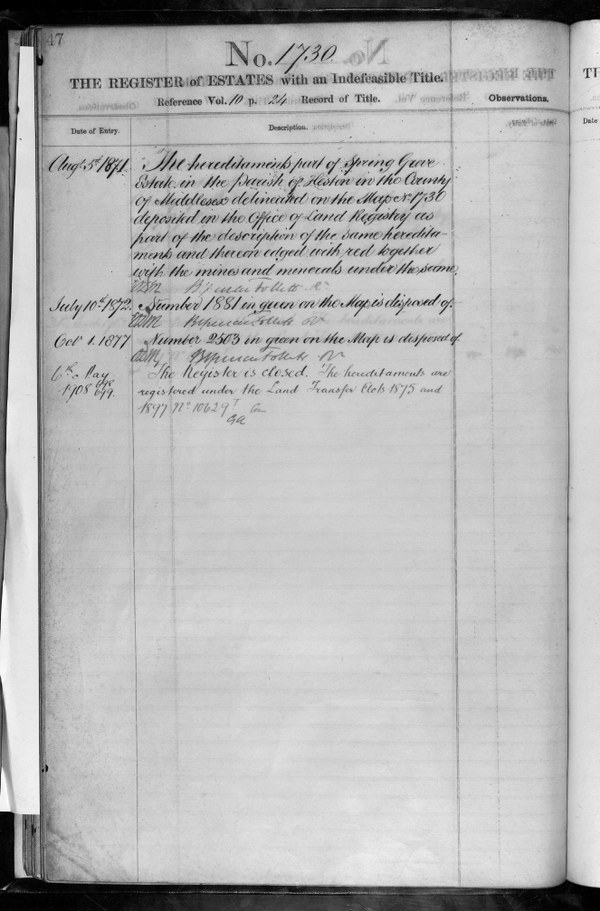 47
No. 1730
THE REGISTER of ESTATES with an Indefeasible Title.
Reference Vol. 10 p. 24 Record of Title. Observations.
Date of Entry. Description.
Augt. 5th 1871. The hereditaments part of Spring Grove
Estate in the Parish of Heston in the County
of Middlesex delineated on the Map No 1730
deposited in the Office of Land Registry as
part of the description of the same heredita-
ments and thereon edged with red together
with the mines and minerals under the same.
Follett
July 10th 1872. Number 1881 in green on the Map is disposed of.
Follett
Octr 1. 1877 Number 2503 in green on the Map is disposed of
Follett
6th May The Register is closed. The hereditaments are
1908 registered under the Land Transfer Acts 1875 and
1897 No 10629